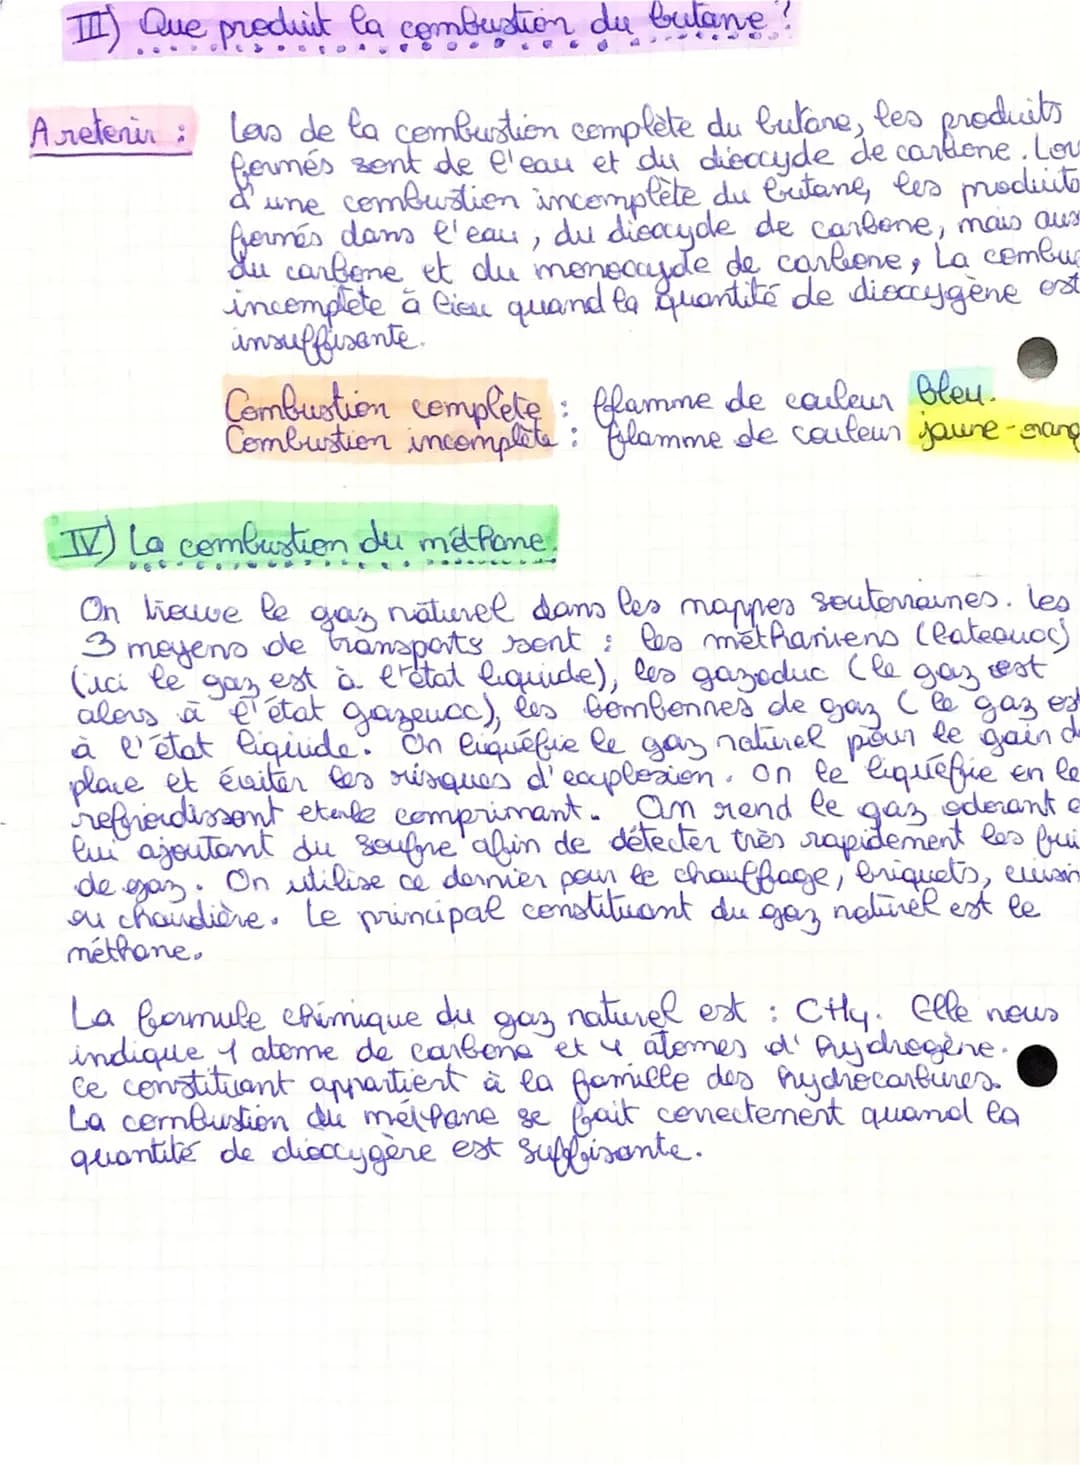 III) Que produit la combustion du butane ?
A retenir : Lors de la combustion complète du butane, les produits
formés sont de l'eau et du dioxyde de carbone. Lou
d'une combustion incomplète du butane, les produits
formés dans l'eau, du dioxyde de carbone, mais aus
du carbone et du monoxyde de carbone, La combu
incomplète à lieu quand la quantité de dioxygène est
insuffisante.
Combustion complete : flamme de couleur bleu.
Combustion incomplète : flamme de couleur jaune-orang
IV) La combustion du méthane.
On trouve le gaz naturel dans les nappes souterraines. Les
3 moyens de transports sont : les méthaniers (bateaux)
(ici le gaz est à l'état liquide), les gazoduc (le gaz est
alors à l'état gazeux), les bombonnes de gaz (le gaz est
à l'état liquide. On liquéfie le gaz naturel pour le gain d
place et éviter les risques d'explosion. On le liquéfie en le
refroidissant et en le comprimant. On rend le gaz odorant e
lui ajoutant du soufre afin de détecter très rapidement les fui
de gaz. On utilise ce dernier pour le chauffage, briquets, cuisin
ou chaudière. Le principal constituant du gaz naturel est le
méthane.
La formule chimique du gaz naturel est : CH4. Elle nous
indique 1 atome de carbone et 4 atomes d'hydrogène.
Ce constituant appartient à la famille des hydrocarbures.
La combustion du méthane se fait correctement quand la
quantité de dioxygène est suffisante.